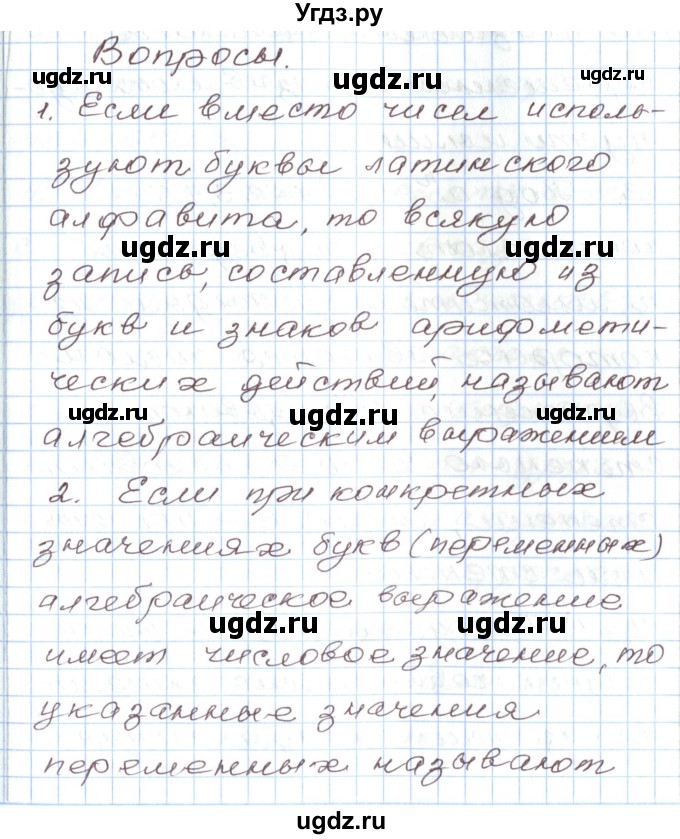 Угдз.ру
Вопросы.
ugdz.ru ugdz.ru
1. Если вместо чисел исполь-
зуют буквы латинского
алфавита, то всякую
ugdz.ru ugdz.ru
запись, составленную из
букв и знаков арифмети-
ческих действий, называют
ugdz.ru ugdz.ru ugdz.ru
алгебраическим выражением
2. Если при конкретных
значениях букв (переменных)
алгебраическое выражение
ugdz.ru ugdz.ru
имеет числовое значение, то
указанные значения
ugdz.ru ugdz.ru
переменных называют
ugdz.ru